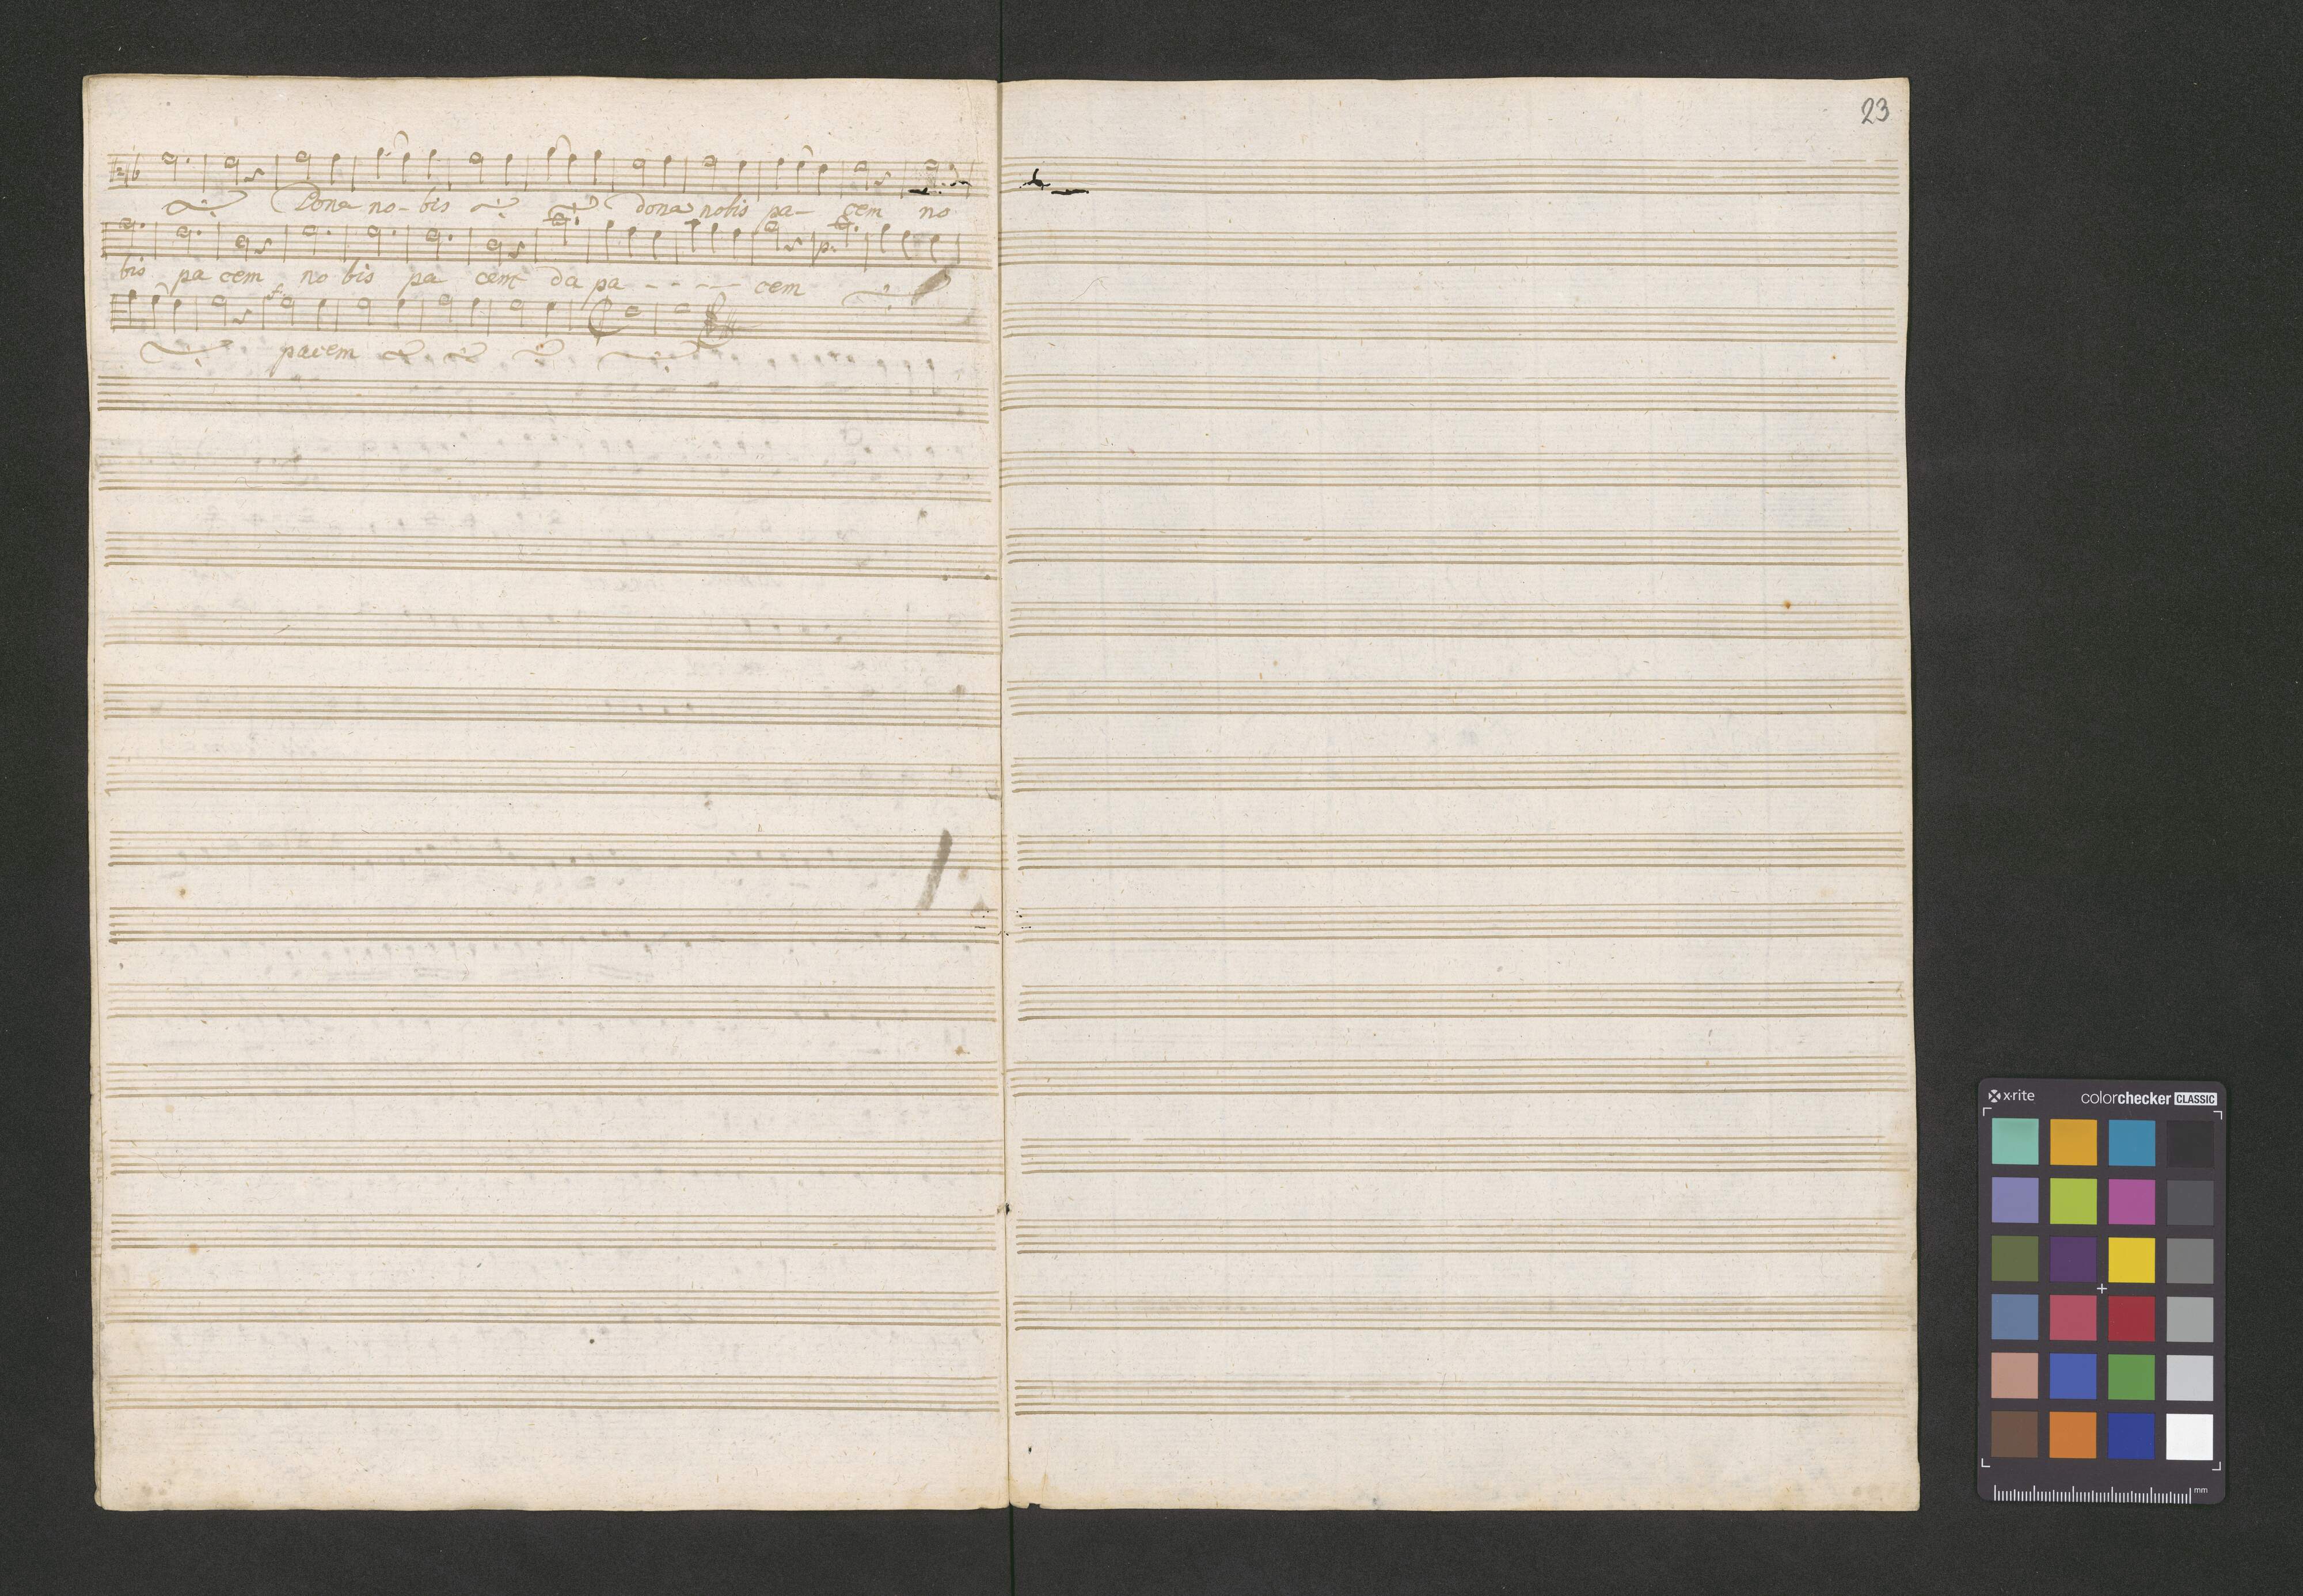 23
Dona no- bis dona nobis pa- cem no
bis pa cem no bis pa cem da pa - - - - cem
p:
f:
pacem
x·rite colorchecker CLASSIC
mm